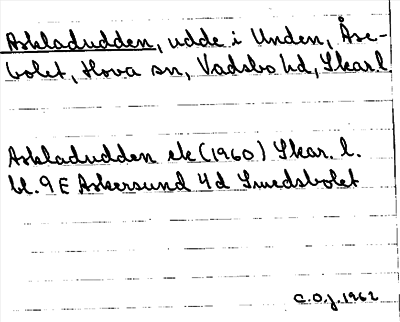 Askladudden, udde i Unden, Åse-
bolet, Hova sn, Vadsbo hd, Skar.l
Askladudden ek (1960) Skar. l.
bl. 9 E Askersund 4d Smedsbolet
C.O.J. 1962